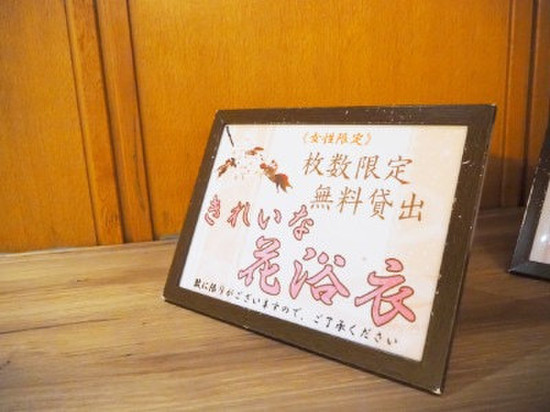 《女性限定》
枚数限定
無料貸出
きれいな
花浴衣
数に限りがございますので、ご了承ください